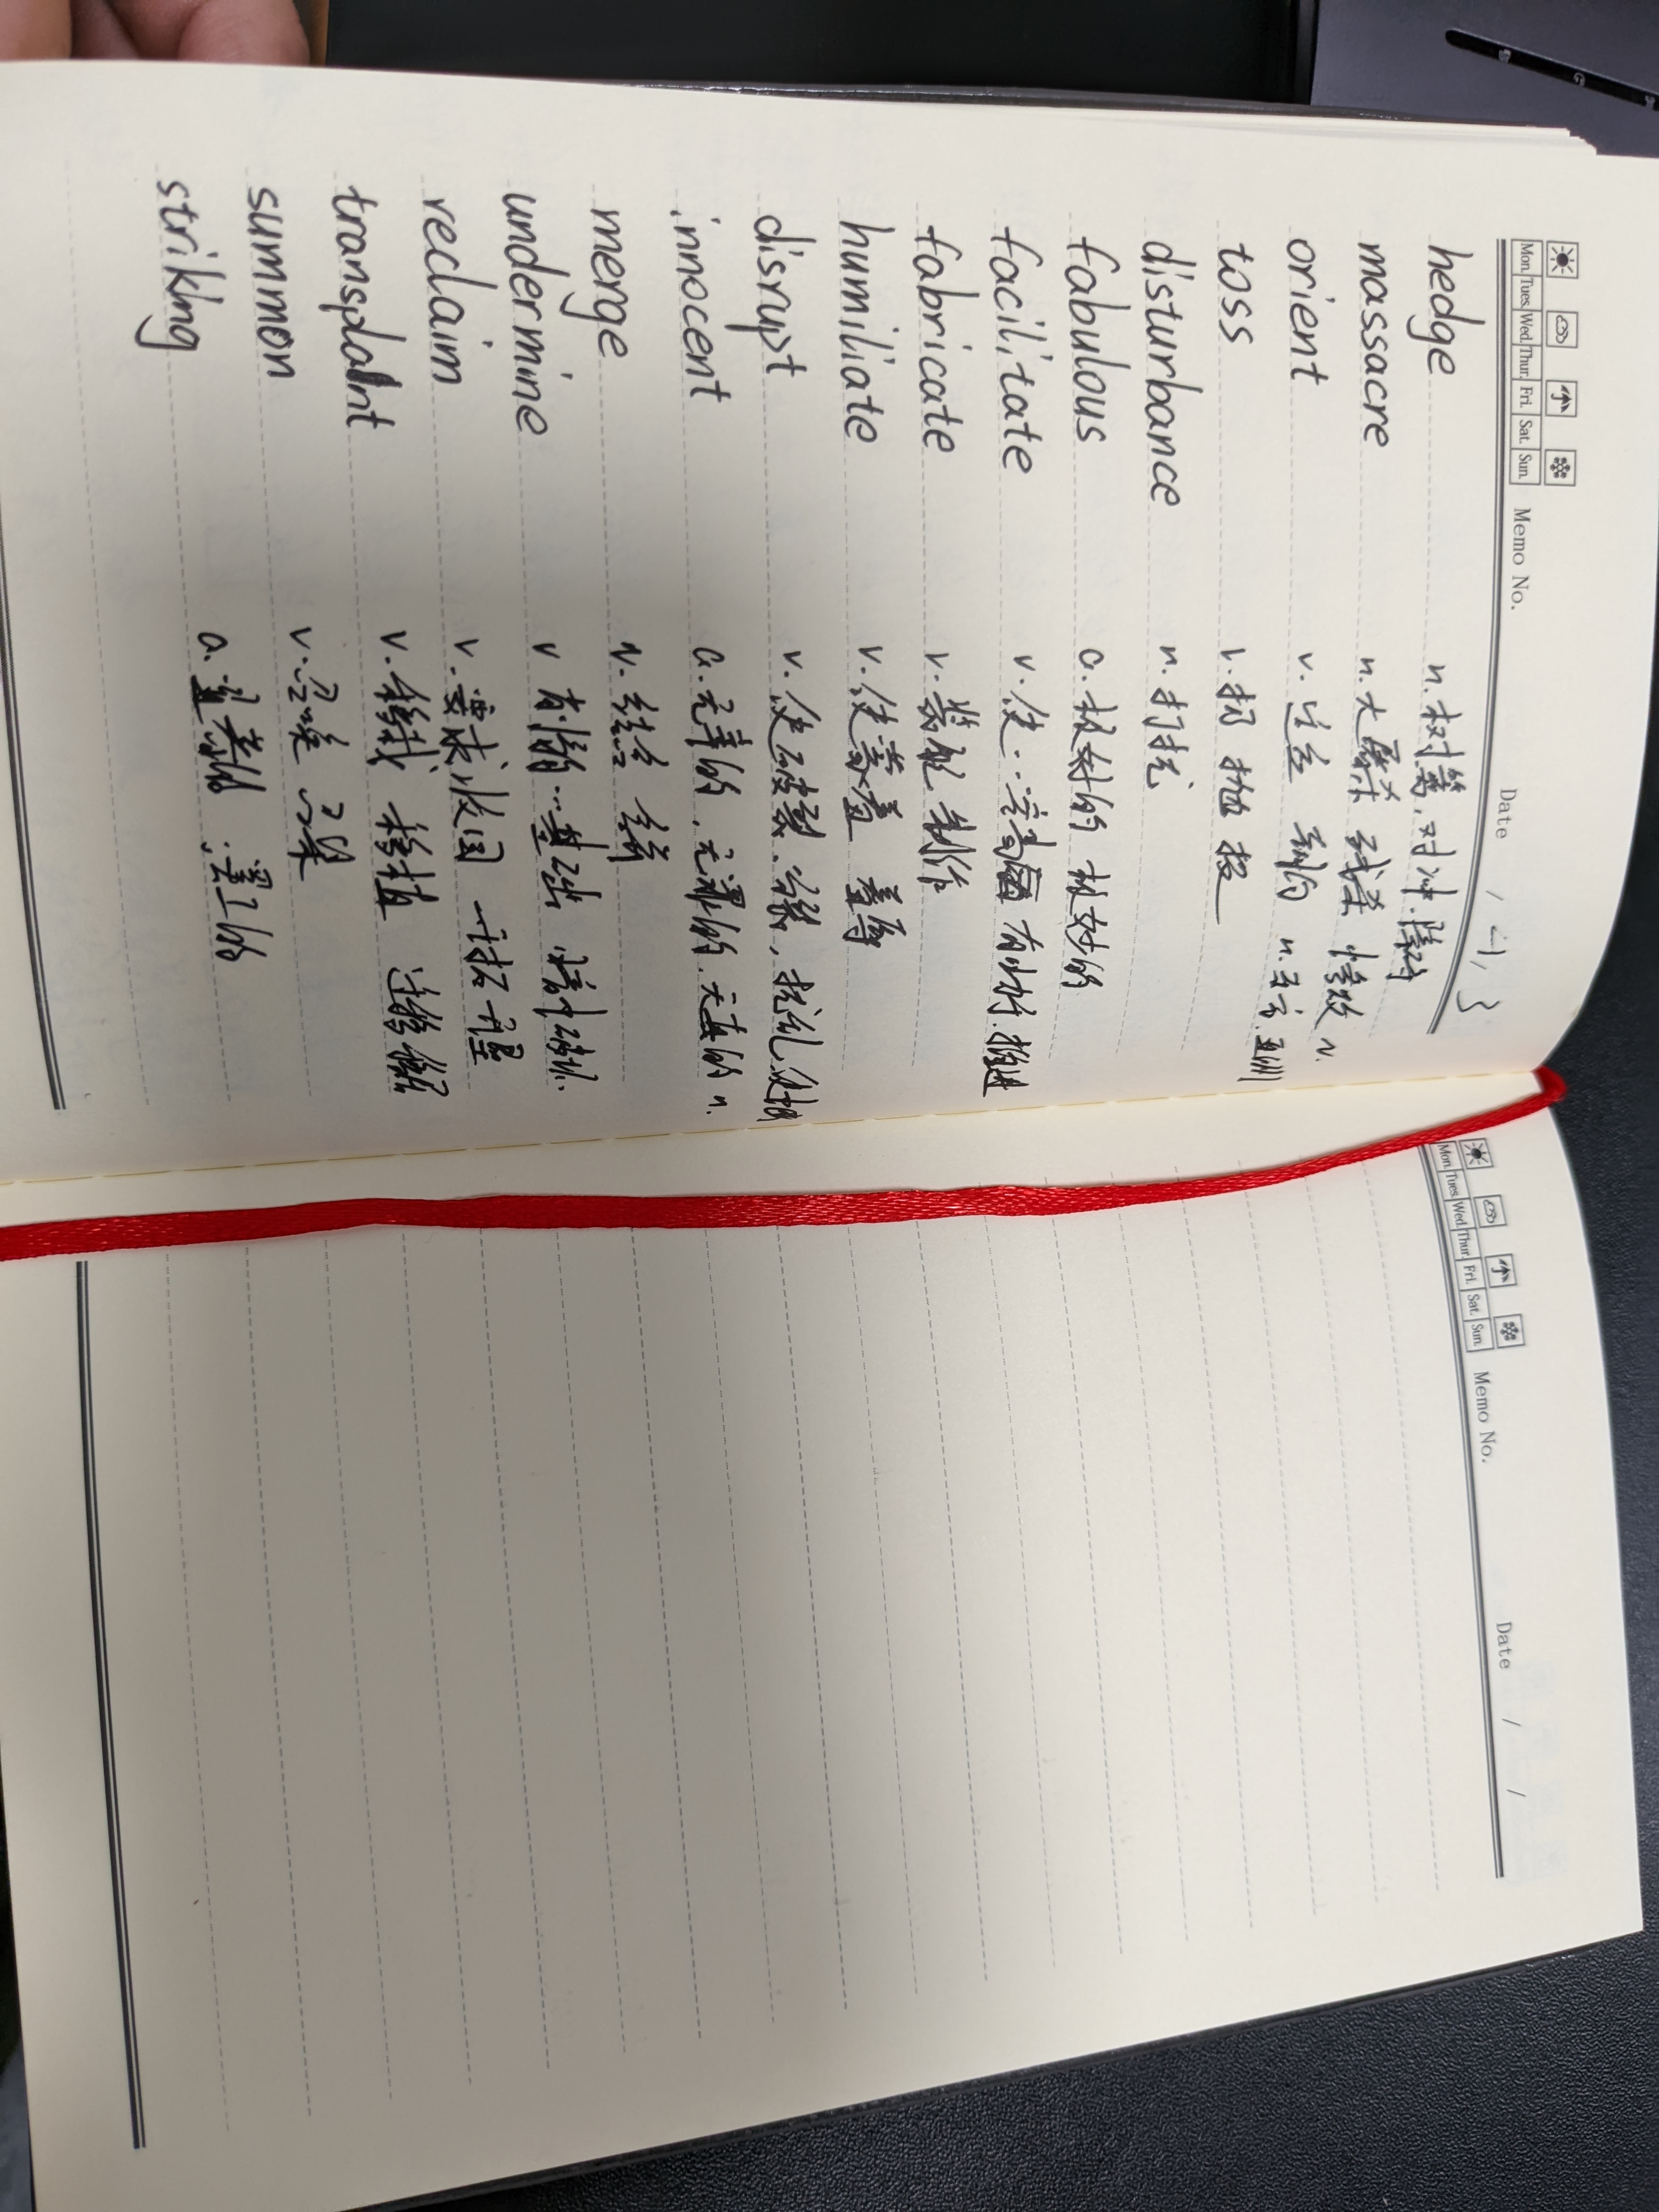 Mon. Tues. Wed. Thur. Fri. Sat. Sun. Memo No. Date / 4, 3
hedge n. 树篱, 对冲. 障碍
massacre n. 大屠杀 残杀 惨败 v.
orient v. 定位 朝向 n. 东方, 亚洲
toss v. 扔 抛 投
disturbance n. 打扰
fabulous a. 极好的 极妙的
facilitate v. 使… 有助于. 推进
fabricate v. 装配 制作
humiliate v. 使蒙羞 羞辱
disrupt v. 使破裂. 分裂, 扰乱.
innocent a. 无辜的. 无罪的. 天真的 n.
merge v. 结合 合并
undermine v 削弱…基础 暗中破坏.
reclaim v. 要求收回 开拓 开垦
transplant v. 移栽 移植 迁移
summon v. 召唤 召集
striking a. 显著的. 罢工的
Mon. Tues. Wed. Thur. Fri. Sat. Sun. Memo No. Date / /